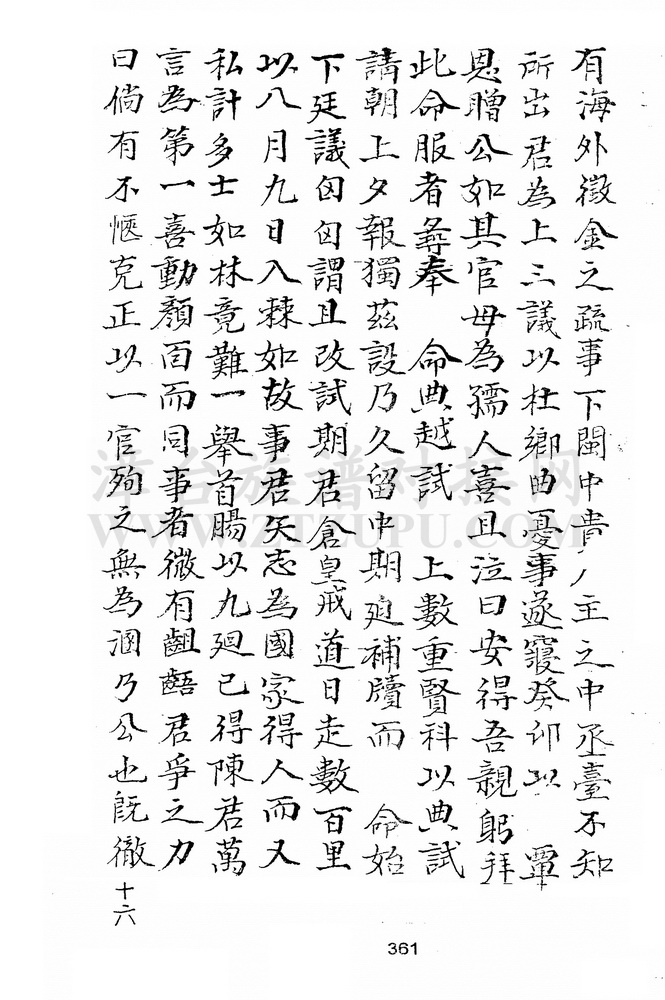 有海外徵金之疏事下閩中貴人主之中丞臺不知
所出君為上三議以杜鄉曲憂事遂寢癸卯以 覃
恩贈公如其官母為孺人喜且泣曰安得吾親躬拜
此命服者彝奉 命典越試 上數重賢科以典試
請朝上夕報獨茲設乃久留中期廹補牘而 命始
下廷議囟囟謂且改試期君倉皇戒道日走數百里
以八月九日入棘如故事君矢志為國家得人而又
私計多士如林竟難一舉首腸以九廻已得陳君萬
言為第一喜動顏面而同事者微有齟齬君爭之力
曰倘有不愜克正以一官殉之無為溷乃公也既徹
十六
361
漳台族谱对接网
WWW.ZTZUPU.COM